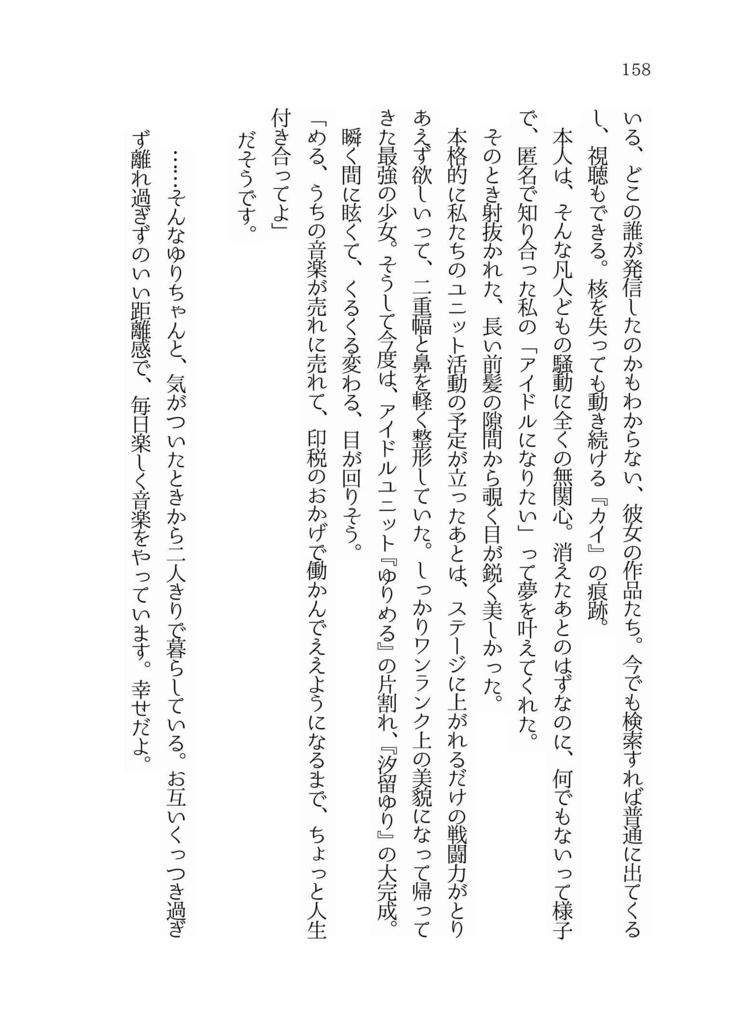 158
いる、どこの誰が発信したのかもわからない、彼女の作品たち。今でも検索すれば普通に出てくる
し、視聴もできる。核を失っても動き続ける『カイ』の痕跡。
本人は、そんな凡人どもの騒動に全くの無関心。消えたあとのはずなのに、何でもないって様子
で、匿名で知り合った私の「アイドルになりたい」って夢を叶えてくれた。
そのとき射抜かれた、長い前髪の隙間から覗く目が鋭く美しかった。
本格的に私たちのユニット活動の予定が立ったあとは、ステージに上がれるだけの戦闘力がとり
あえず欲しいって、二重幅と鼻を軽く整形していた。しっかりワンランク上の美貌になって帰って
きた最強の少女。そうして今度は、アイドルユニット『ゆりめる』の片割れ、『汐留ゆり』の大完成。
瞬く間に眩くて、くるくる変わる、目が回りそう。
「める、うちの音楽が売れに売れて、印税のおかげで働かんでええようになるまで、ちょっと人生
付き合ってよ」
だそうです。
……そんなゆりちゃんと、気がついたときから二人きりで暮らしている。お互いくっつき過ぎ
ず離れ過ぎずのいい距離感で、毎日楽しく音楽をやっています。幸せだよ。